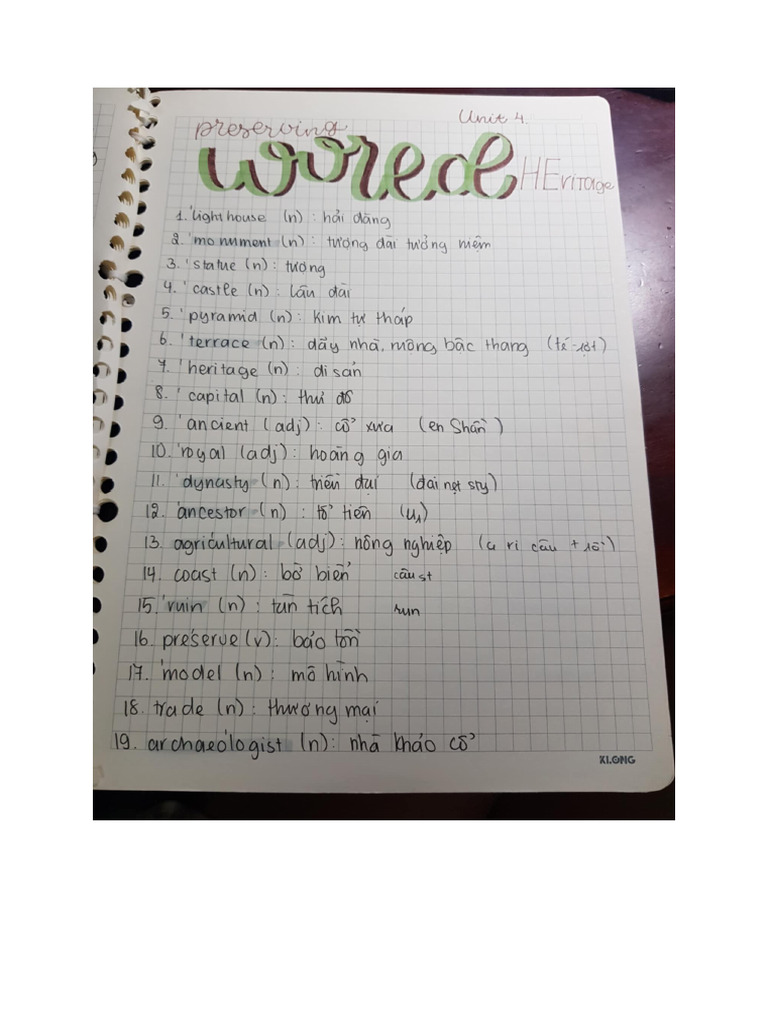 Unit 4.
preserving
World HEritage
1. 'lighthouse (n) : hải đăng
2. 'monument (n) : tượng đài tưởng niệm
3. 'statue (n) : tượng
4. 'castle (n) : lâu đài
5. 'pyramid (n) : kim tự tháp
6. 'terrace (n) : dãy nhà, ruộng bậc thang (te-rợt)
7. 'heritage (n) : di sản
8. 'capital (n) : thủ đô
9. 'ancient (adj) : cổ xưa (en Shần)
10. 'royal (adj) : hoàng gia
11. 'dynasty (n) : triều đại (đai nợt sty)
12. 'ancestor (n) : tổ tiên
13. agricultural (adj) : nông nghiệp
14. coast (n) : bờ biển câu st
15. 'ruin (n) : tàn tích run
16. pre'serve (v) : bảo tồn
17. 'model (n) : mô hình
18. trade (n) : thương mại
19. archae'ologist (n) : nhà khảo cổ
KLONG